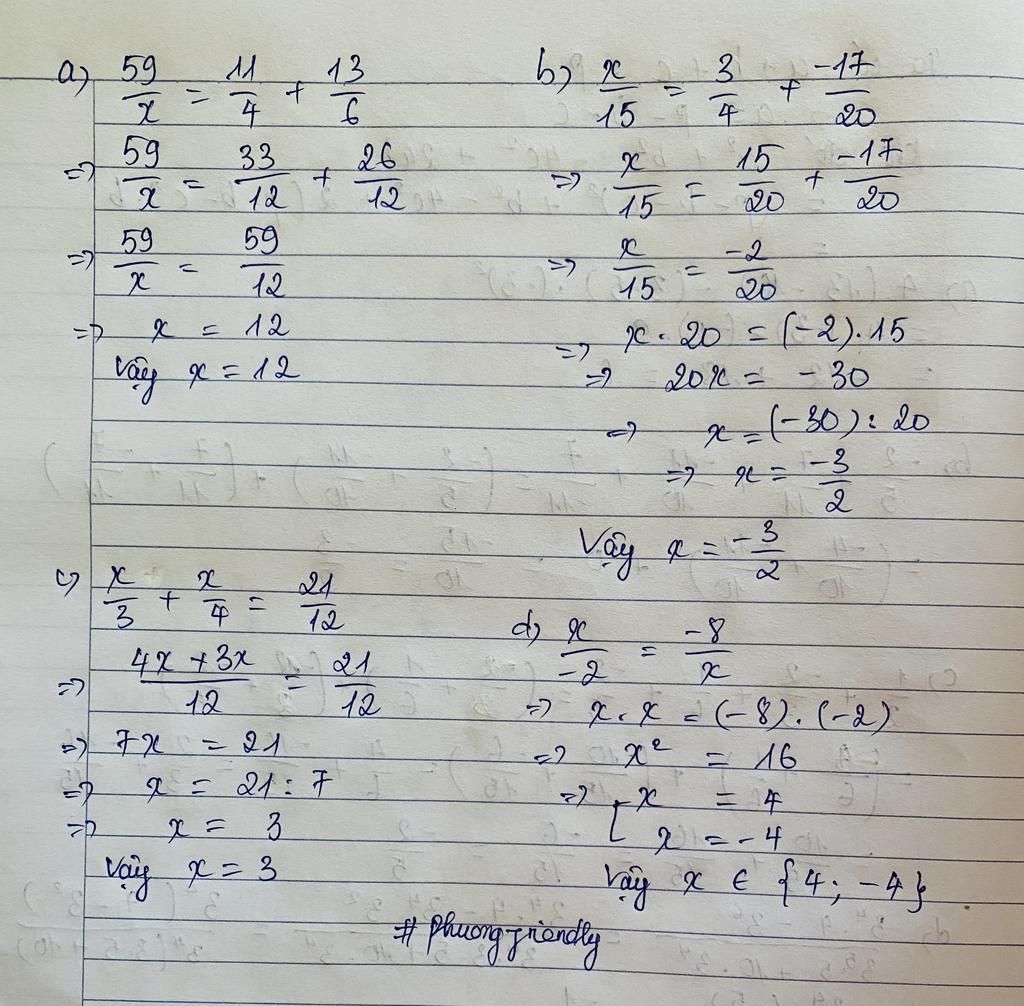 a) 59/x = 11/4 + 13/6
=> 59/x = 33/12 + 26/12
=> 59/x = 59/12
=> x = 12
Vậy x = 12
b) x/15 = 3/4 + -17/20
=> x/15 = 15/20 + -17/20
=> x/15 = -2/20
=> x . 20 = (-2) . 15
=> 20x = -30
=> x = (-30) : 20
=> x = -3/2
Vậy x = -3/2
c) x/3 + x/4 = 21/12
=> 4x + 3x/12 = 21/12
=> 7x = 21
=> x = 21 : 7
=> x = 3
Vậy x = 3
d) x/-2 = -8/x
=> x . x = (-8) . (-2)
=> x² = 16
=> [ x = 4
x = -4
Vậy x ∈ {4; -4}
# phuong-friendly